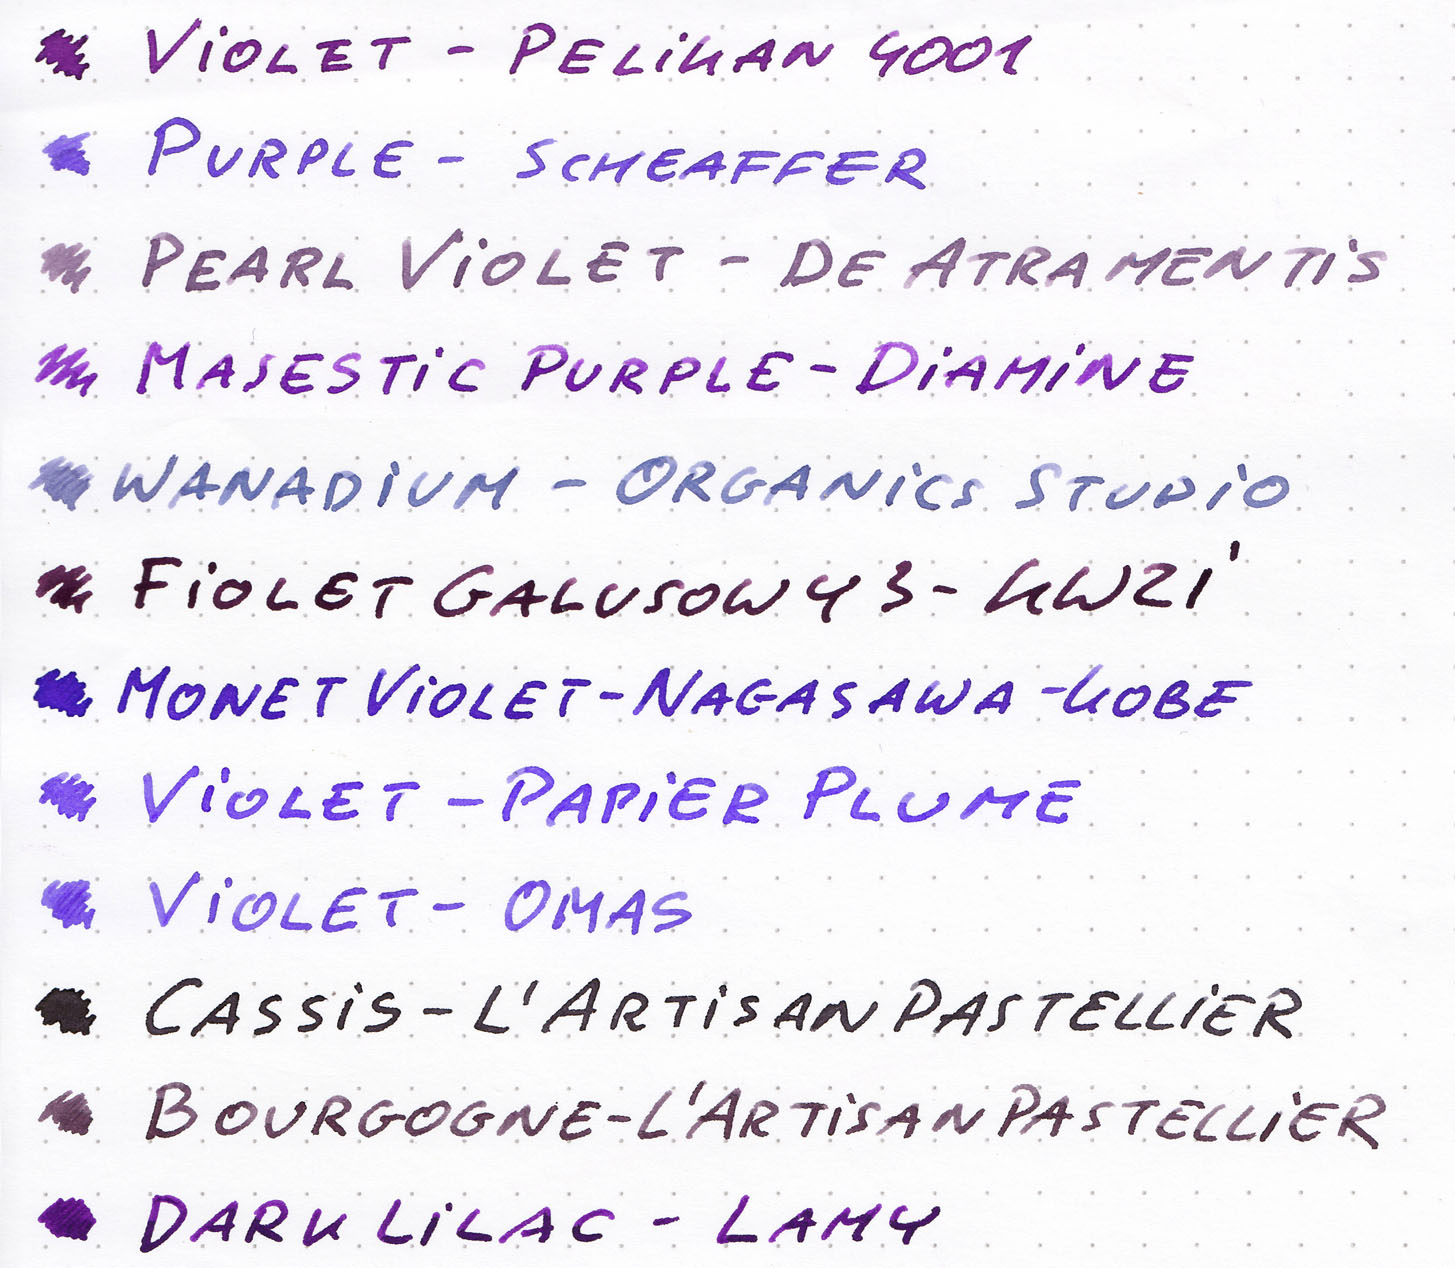 ViOLET - PELiKAN 4001
PURPLE - SCHEAFFER
PEARL ViOLET - DE ATRAMENTiS
MAJESTiC PURPLE - DiAMiNE
WANADiUM - ORGANiCS STUDiO
FiOLET GALUSOWY 3 - KWZI
MONET ViOLET - NAGASAWA - KOBE
ViOLET - PAPiER PLUME
ViOLET - OMAS
CASSiS - L'ARTiSAN PASTELLiER
BOURGOGNE - L'ARTiSAN PASTELLiER
DARK LiLAC - LAMY